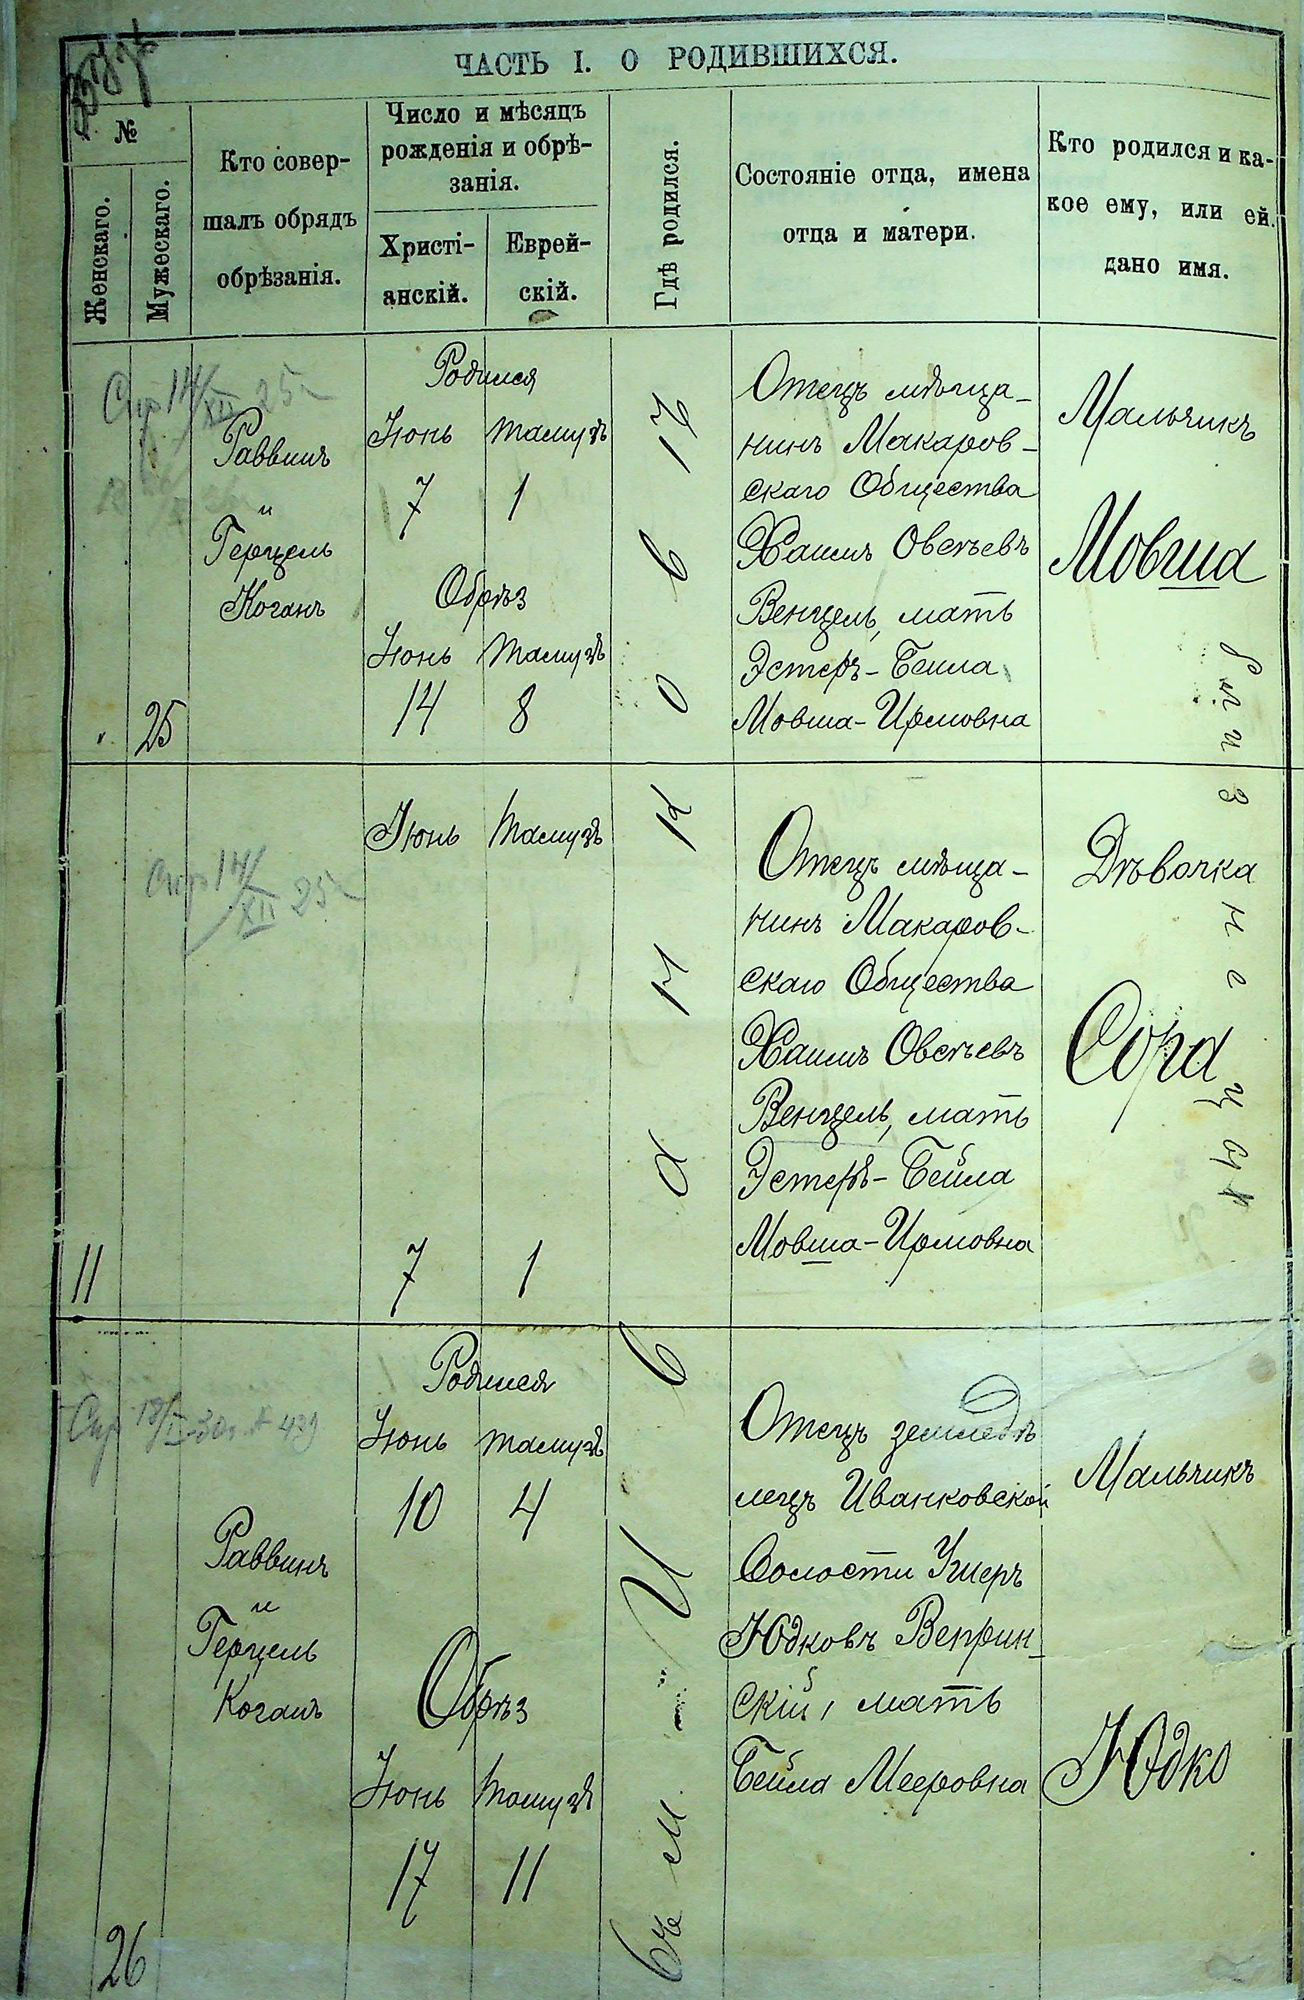 ЧАСТЬ I. О РОДИВШИХСЯ.
№
Женскаго.
Мужескаго.
Кто совер-
шалъ обрядъ
обрѣзанія.
Число и мѣсяцъ
рожденія и обрѣ-
занія.
Христі-
анскій.
Еврей-
скій.
Гдѣ родился.
Состояніе отца, имена
отца и матери.
Кто родился и ка-
кое ему, или ей
дано имя.
25
Раввинъ
и
Герцель
Коганъ
Родился
Іюнь Тамузъ
7 1
Обрѣз
Іюнь Тамузъ
14 8
Отецъ мѣща-
нинъ Макаров-
скаго Общества
Хаимъ Овсѣевъ
Венцель, мать
Эстеръ-Бейла
Мовша-Ирмовна
Мальчикъ
Мовша
11
Іюнь Тамузъ
7 1
Отецъ мѣща-
нинъ Макаров-
скаго Общества
Хаимъ Овсѣевъ
Венцель, мать
Эстеръ-Бейла
Мовша-Ирмовна
Дѣвочка
Сура
близнецы
26
Раввинъ
и
Герцель
Коганъ
Родился
Іюнь Тамузъ
10 4
Обрѣз
Іюнь Тамузъ
17 11
въ м. Иванковѣ
Отецъ земледѣ
лецъ Иванковской
Волости Ушеръ
Юдковъ Веприн-
скій, мать
Бейла Мееровна
Мальчикъ
Юдко